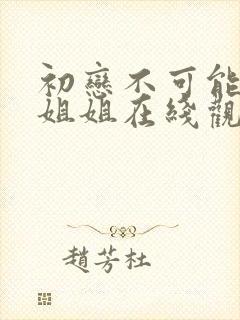 初戀不可能
姐姐在綫觀
趙芳杜